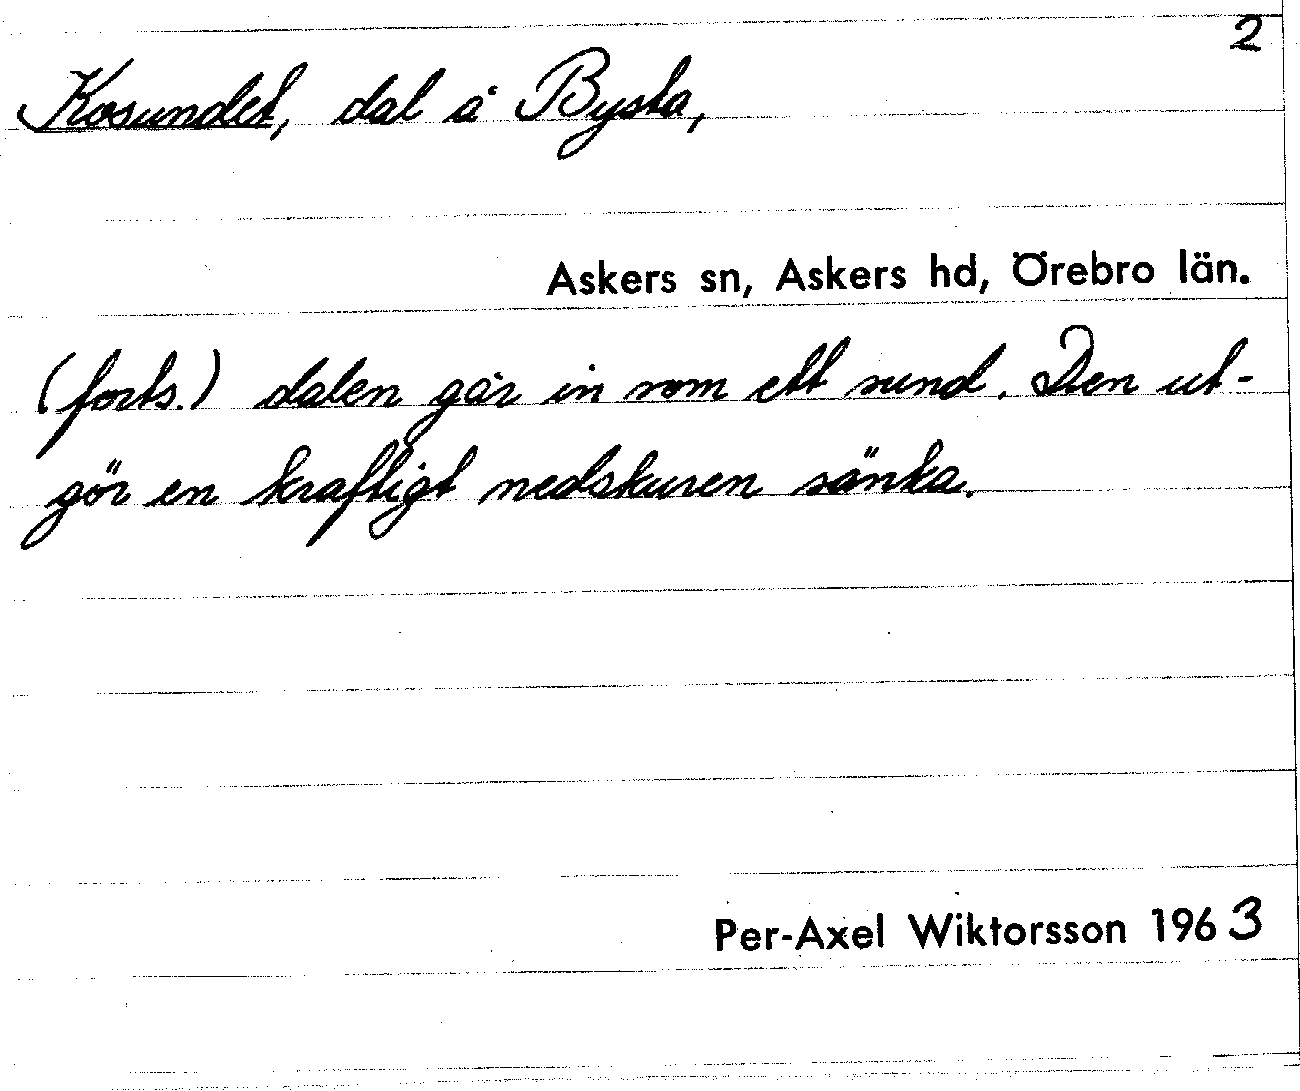 2
Kosundet, dal å Bysta,
Askers sn, Askers hd, Örebro län.
(forts.) dalen går in som ett sund. Den ut-
gör en kraftigt nedskuren sänka.
Per-Axel Wiktorsson 1963